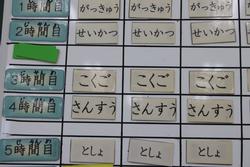 1時間目 がっきゅう がっきゅう がっきゅう
2時間目 せいかつ せいかつ せいかつ
3時間目 こくご こくご こくご
4時間目 さんすう さんすう さんすう
5時間目 としょ としょ としょ